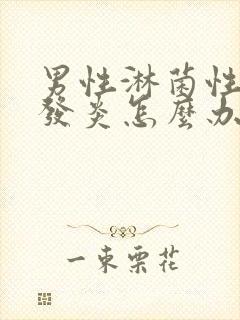 男性淋菌性
發炎怎麼办
一束栗花